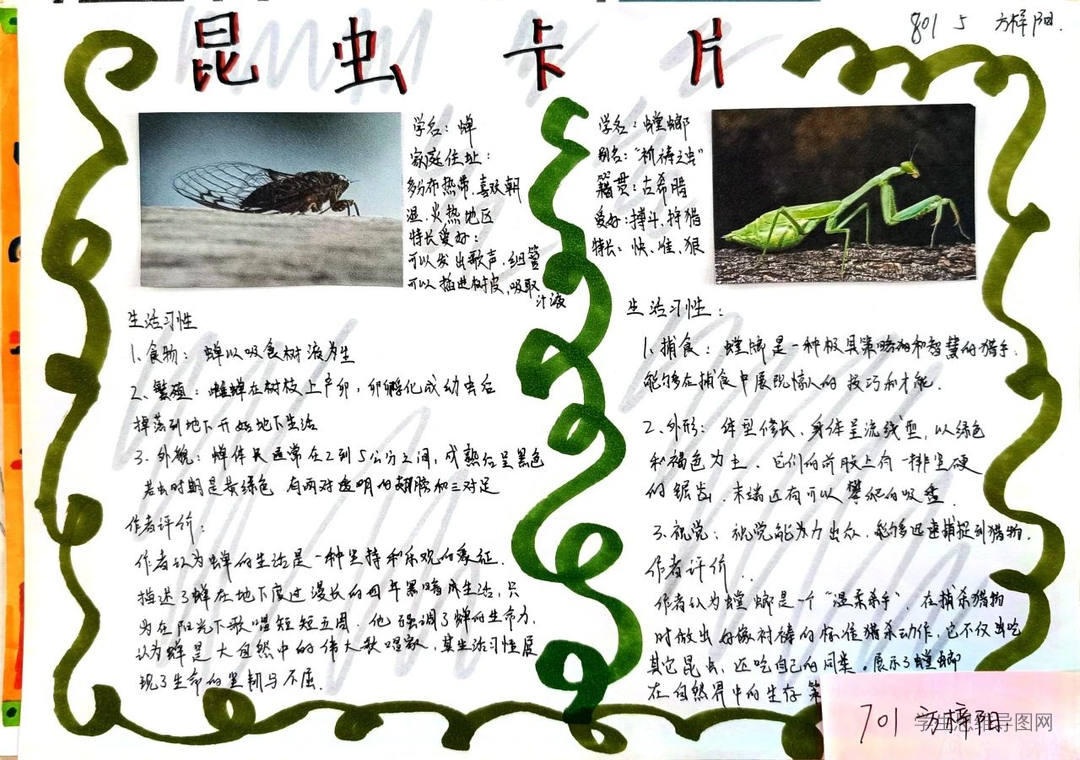 昆虫卡片
801 5 方梓阳.
学名：蝉
家庭住址：
多分布热带,喜欢潮
湿、火热地区
特长爱好：
可以发出歌声,细嘴
可以插进树皮,吸取
汁液
生活习性
1、食物：蝉以吸食树液为生
2、繁殖：蝉在树枝上产卵，卵孵化成幼虫后
掉落到地下开始地下生活
3、外貌：蝉体长通常在2到5公分之间,成熟后呈黑色
若虫时期是黄绿色 有两对透明的翅膀和三对足
作者评价：
作者认为蝉的生活是一种坚持和乐观的象征.
描述了蝉在地下度过漫长的四年黑暗成生活,只
为在阳光下歌唱短短五周.他强调了蝉的生命力,
认为蝉是大自然中的伟大歌唱家,其生活习性展
现了生命的坚韧与不屈.
学名：螳螂
别名："祈祷之虫"
籍贯：古希腊
爱好：搏斗、捕猎
特长：快、准、狠
生活习性：
1、捕食：螳螂是一种极具策略和智慧的猎手,
能够在捕食中展现惊人的技巧和才能.
2、外形：体型修长、身体呈流线型,以绿色
和褐色为主.它们的前肢上有一排坚硬
的锯齿,末端还有可以攀爬的吸盘.
3、视觉：视觉能力出众,能够迅速捕捉到猎物.
作者评价：
作者认为螳螂是一个"温柔杀手",在捕杀猎物
时做出好像祈祷的标准猎杀动作,它不仅出吃
其它昆虫,还吃自己的同类.展示了螳螂
在自然界中的生存策
701 方梓阳
学生思维导图网